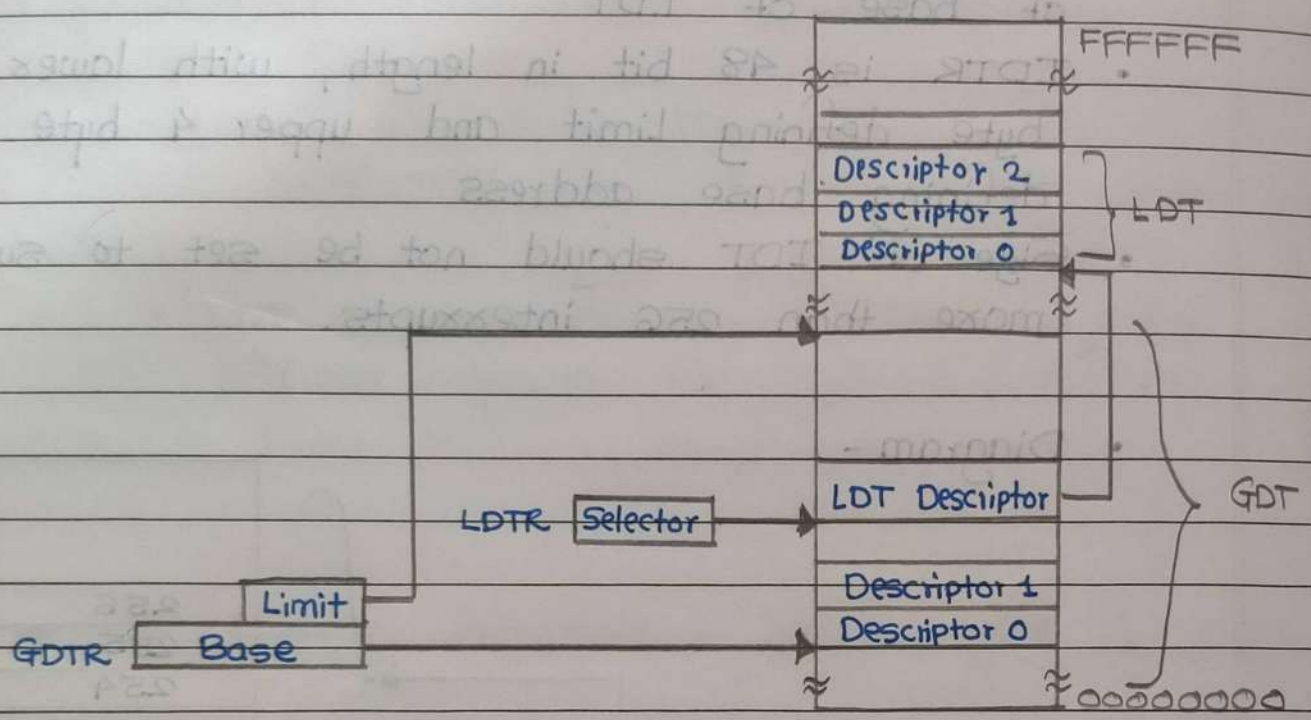 FFFFFF
Descriptor 2
Descriptor 1
LDT
Descriptor 0
LDT Descriptor
GDT
LDTR Selector
Descriptor 1
Limit
Descriptor 0
GDTR Base
00000000